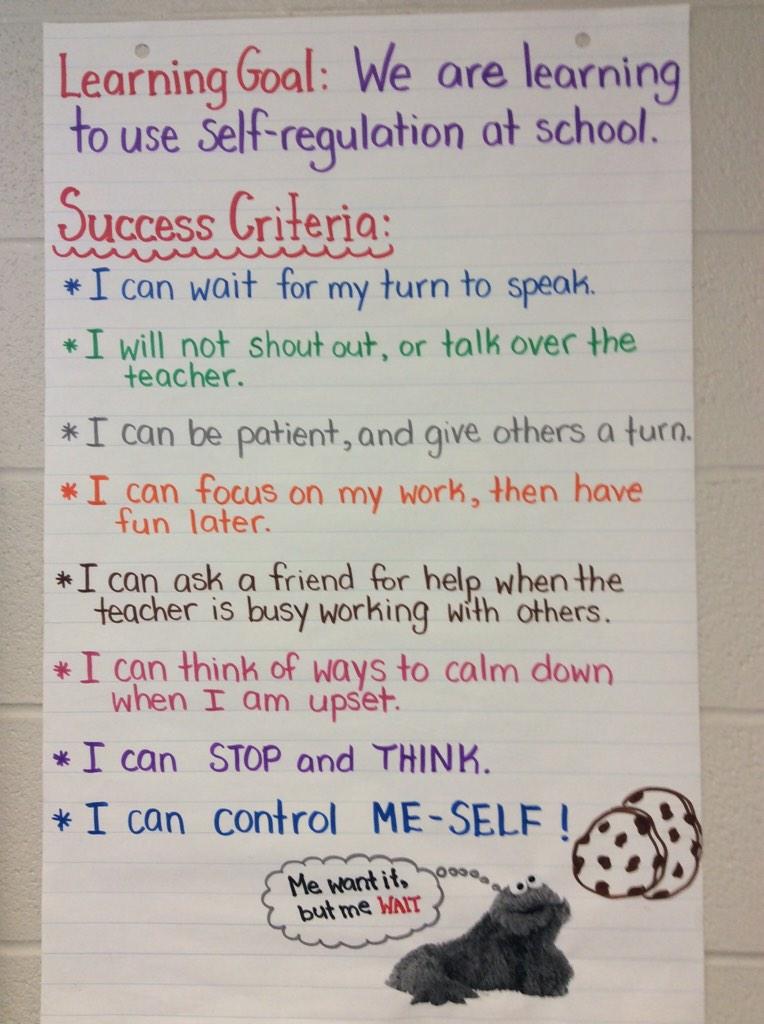 Learning Goal: We are learning
to use self-regulation at school.
Success Criteria:
* I can wait for my turn to speak.
* I will not shout out, or talk over the
teacher.
* I can be patient, and give others a turn.
* I can focus on my work, then have
fun later.
* I can ask a friend for help when the
teacher is busy working with others.
* I can think of ways to calm down
when I am upset.
* I can STOP and THINK.
* I can control ME-SELF!
Me want it,
but me WAIT